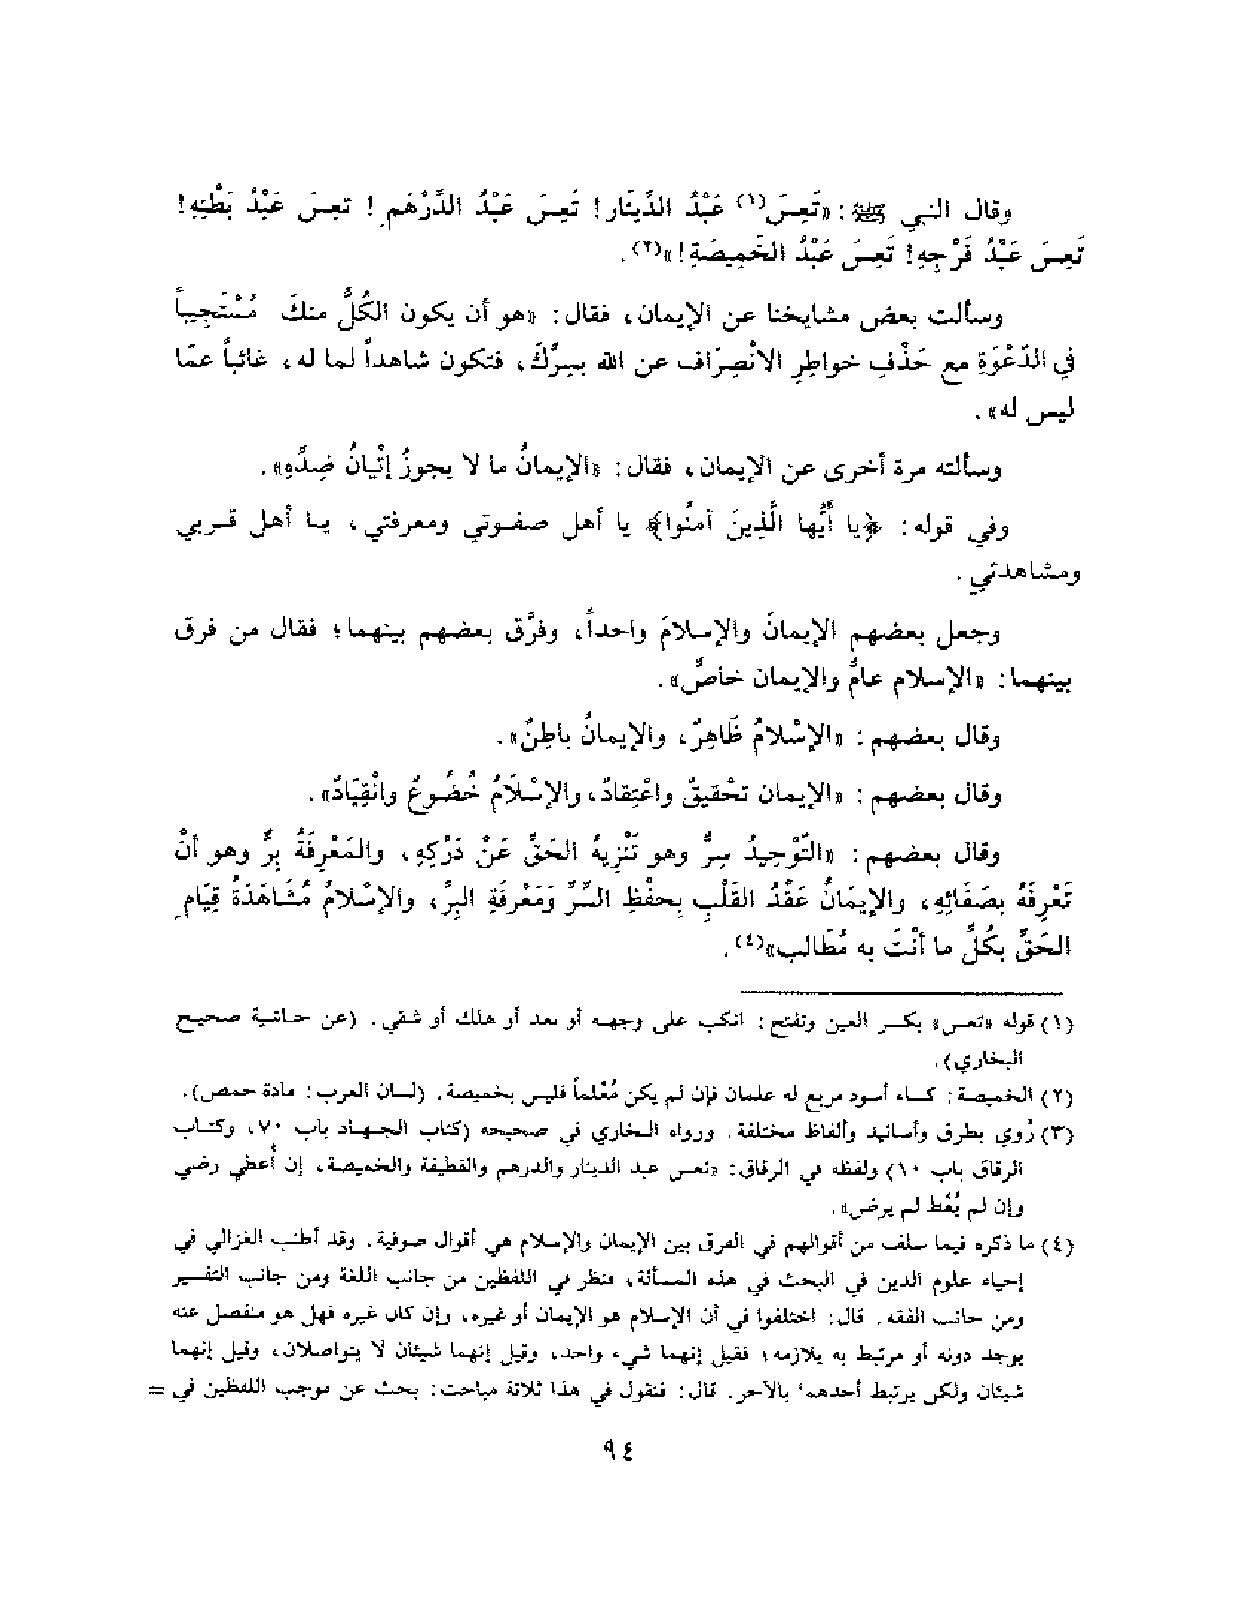 وقال النبي ﷺ : «تَعِسَ(١) عَبْدُ الدِّينَار! تَعِسَ عَبْدُ الدِّرْهَمِ! تعِسَ عَبْدُ بَطْنِهِ!
تَعِسَ عَبْدُ فَرْجِهِ! تَعِسَ عَبْدُ الخَمِيصَةِ!»(٢).
وسألت بعض مشايخنا عن الإيمان، فقال: «هو أن يكون الكُلُّ منكَ مُسْتَجِيباً
في الدَّعْوَةِ مع حَذْفِ خواطِرِ الانْصِرَاف عن الله بِسِرِّكَ، فتكون شاهداً لما له، غائباً عمّا
ليس له».
وسألته مرة أخرى عن الإيمان، فقال: «الإيمانُ ما لا يجوزُ إتْيانُ ضِدِّهِ».
وفي قوله: ﴿يا أيُّها الَّذِينَ آمنُوا﴾ يا أهل صفوتي ومعرفتي، يا أهل قربي
ومشاهدتي.
وجعل بعضهم الإيمانَ والإسلامَ واحداً، وفرَّق بعضهم بينهما؛ فقال من فرق
بينهما: «الإسلام عامٌّ والإيمان خاصٌّ».
وقال بعضهم: «الإسْلامُ ظَاهِرٌ، والإيمانُ باطِنٌ».
وقال بعضهم: «الإيمان تحْقيقٌ واعْتِقادٌ، والإسْلَامُ خُضُوعٌ وانْقِيَادٌ».
وقال بعضهم: «التَّوْحِيدُ سِرٌّ وهو تَنْزِيهُ الحَقِّ عَنْ دَرْكِهِ، والمَعْرِفَةُ بِرٌّ وهو أنْ
تَعْرِفَهُ بصَفَائِهِ، والإيمَانُ عَقْدُ القَلْبِ بِحفْظِ السِّرِّ وَمَعْرفَةِ البِرِّ، والإسْلامُ مُشَاهَدَةُ قِيَامِ
الحَقِّ بكُلِّ ما أنْتَ به مُطَالب»(٤).
(١) قوله «تعس» بكسر العين وتفتح: انكب على وجهه أو بعد أو هلك أو شقي. (عن حاشية صحيح
البخاري).
(٢) الخميصة: كساء أسود مربع له علمان فإن لم يكن مُعْلماً فليس بخميصة. (لسان العرب: مادة حمص).
(٣) رُوي بطرق وأسانيد وألفاظ مختلفة. ورواه البخاري في صحيحه (كتاب الجهاد باب ٧٠، وكتاب
الرقاق باب ١٠) ولفظه في الرقاق: «تعس عبد الدينار والدرهم والقطيفة والخميصة، إن أُعطي رضي
وإن لم يُعْط لم يرض».
(٤) ما ذكره فيما سلف من أقوالهم في الفرق بين الإيمان والإسلام هي أقوال صوفية. وقد أطنب الغزالي في
إحياء علوم الدين في البحث في هذه المسألة، فنظر في اللفظين من جانب اللغة ومن جانب التفسير
ومن جانب الفقه. قال: اختلفوا في أن الإسلام هو الإيمان أو غيره، وإن كان غيره فهل هو منفصل عنه
يوجد دونه أو مرتبط به يلازمه؛ فقيل إنهما شيء واحد، وقيل إنهما شيئان لا يتواصلان، وقيل إنهما
شيئان ولكن يرتبط أحدهما بالآخر. قال: فنقول في هذا ثلاثة مباحث: بحث عن موجب اللفظين في =
٩٤